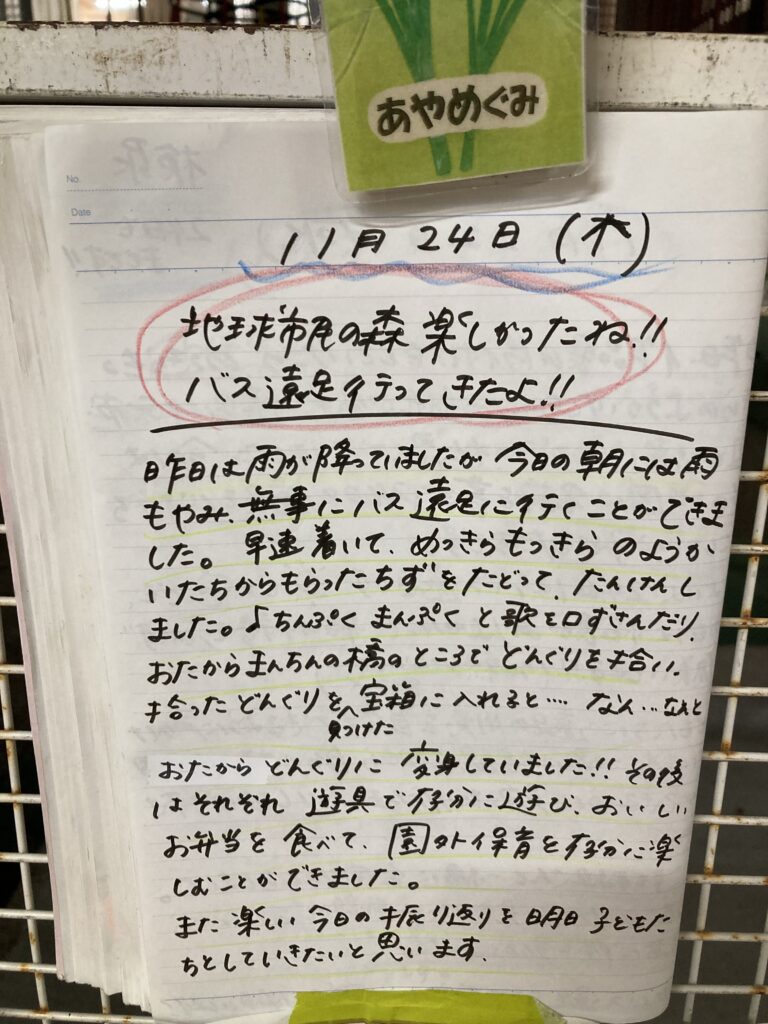 あやめぐみ
No.
Date
11月24日(木)
地球市民の森 楽しかったね!!
バス遠足行ってきたよ!!
昨日は雨が降っていましたが 今日の朝には雨
もやみ、無事にバス遠足に行くことができま
した。早速着いて、めっきらもっきら のようか
いたちからもらったちずをたどって、たんけんし
ました。♪ちんぷく まんぷく と歌を口ずさんだり、
おたからまんちんの橋のところで どんぐりを拾い、
拾ったどんぐりを見つけた宝箱に入れると…なん…なんと
おたからどんぐりに 変身していました!!その後
はそれぞれ 遊具で存分に遊び、おいしい
お弁当を食べて、園外保育を存分に楽
しむことができました。
また楽しい今日の振り返りを明日子どもた
ちとしていきたいと思います。